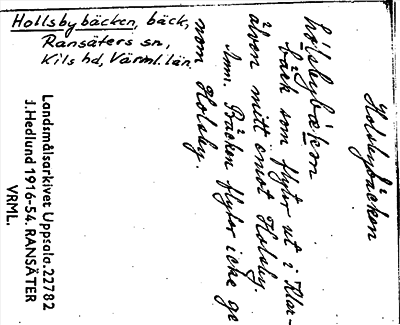 Hollsbybäcken, bäck,
Ransäters sn,
Kils hd, Värml. län.
Holsbybäcken
hólsbybäkm
bäck som flyter ut i Klar-
älven mitt emot Holsby.
Anm. Bäcken flyter icke ge
nom Holsby.
Landsmålsarkivet Uppsala. 22782
J. Hedlund 1916-54. RANSÄTER
VRML.